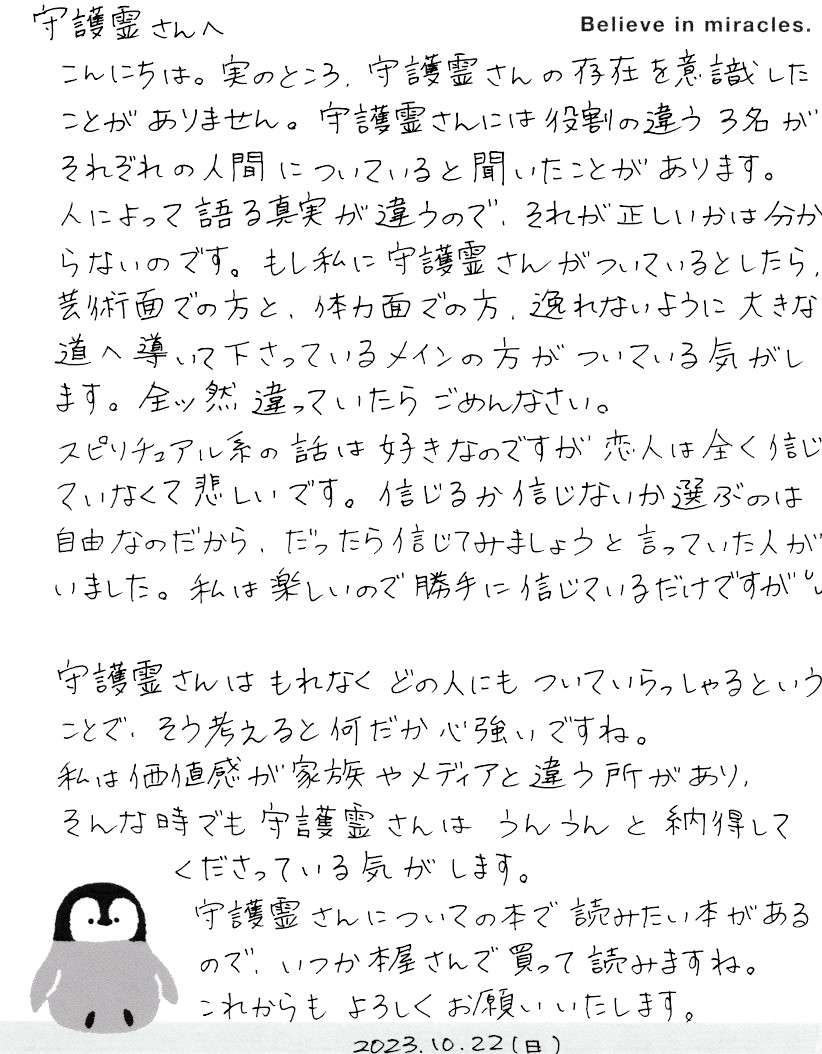 守護霊さんへ
Believe in miracles.
こんにちは。実のところ、守護霊さんの存在を意識した
ことがありません。守護霊さんには役割の違う3名が
それぞれの人間についていると聞いたことがあります。
人によって語る真実が違うので、それが正しいかは分か
らないのです。もし私に守護霊さんがついているとしたら、
芸術面での方と、体力面での方、逸れないように大きな
道へ導いて下さっているメインの方がついている気がし
ます。全ッ然違っていたらごめんなさい。
スピリチュアル系の話は好きなのですが恋人は全く信じ
ていなくて悲しいです。信じるか信じないか選ぶのは
自由なのだから、だったら信じてみましょうと言っていた人が
いました。私は楽しいので勝手に信じているだけですが
守護霊さんはもれなくどの人にもついていらっしゃるという
ことで、そう考えると何だか心強いですね。
私は価値感が家族やメディアと違う所があり、
そんな時でも守護霊さんはうんうんと納得して
くださっている気がします。
守護霊さんについての本で読みたい本がある
ので、いつか本屋さんで買って読みますね。
これからもよろしくお願いいたします。
2023.10.22(日)